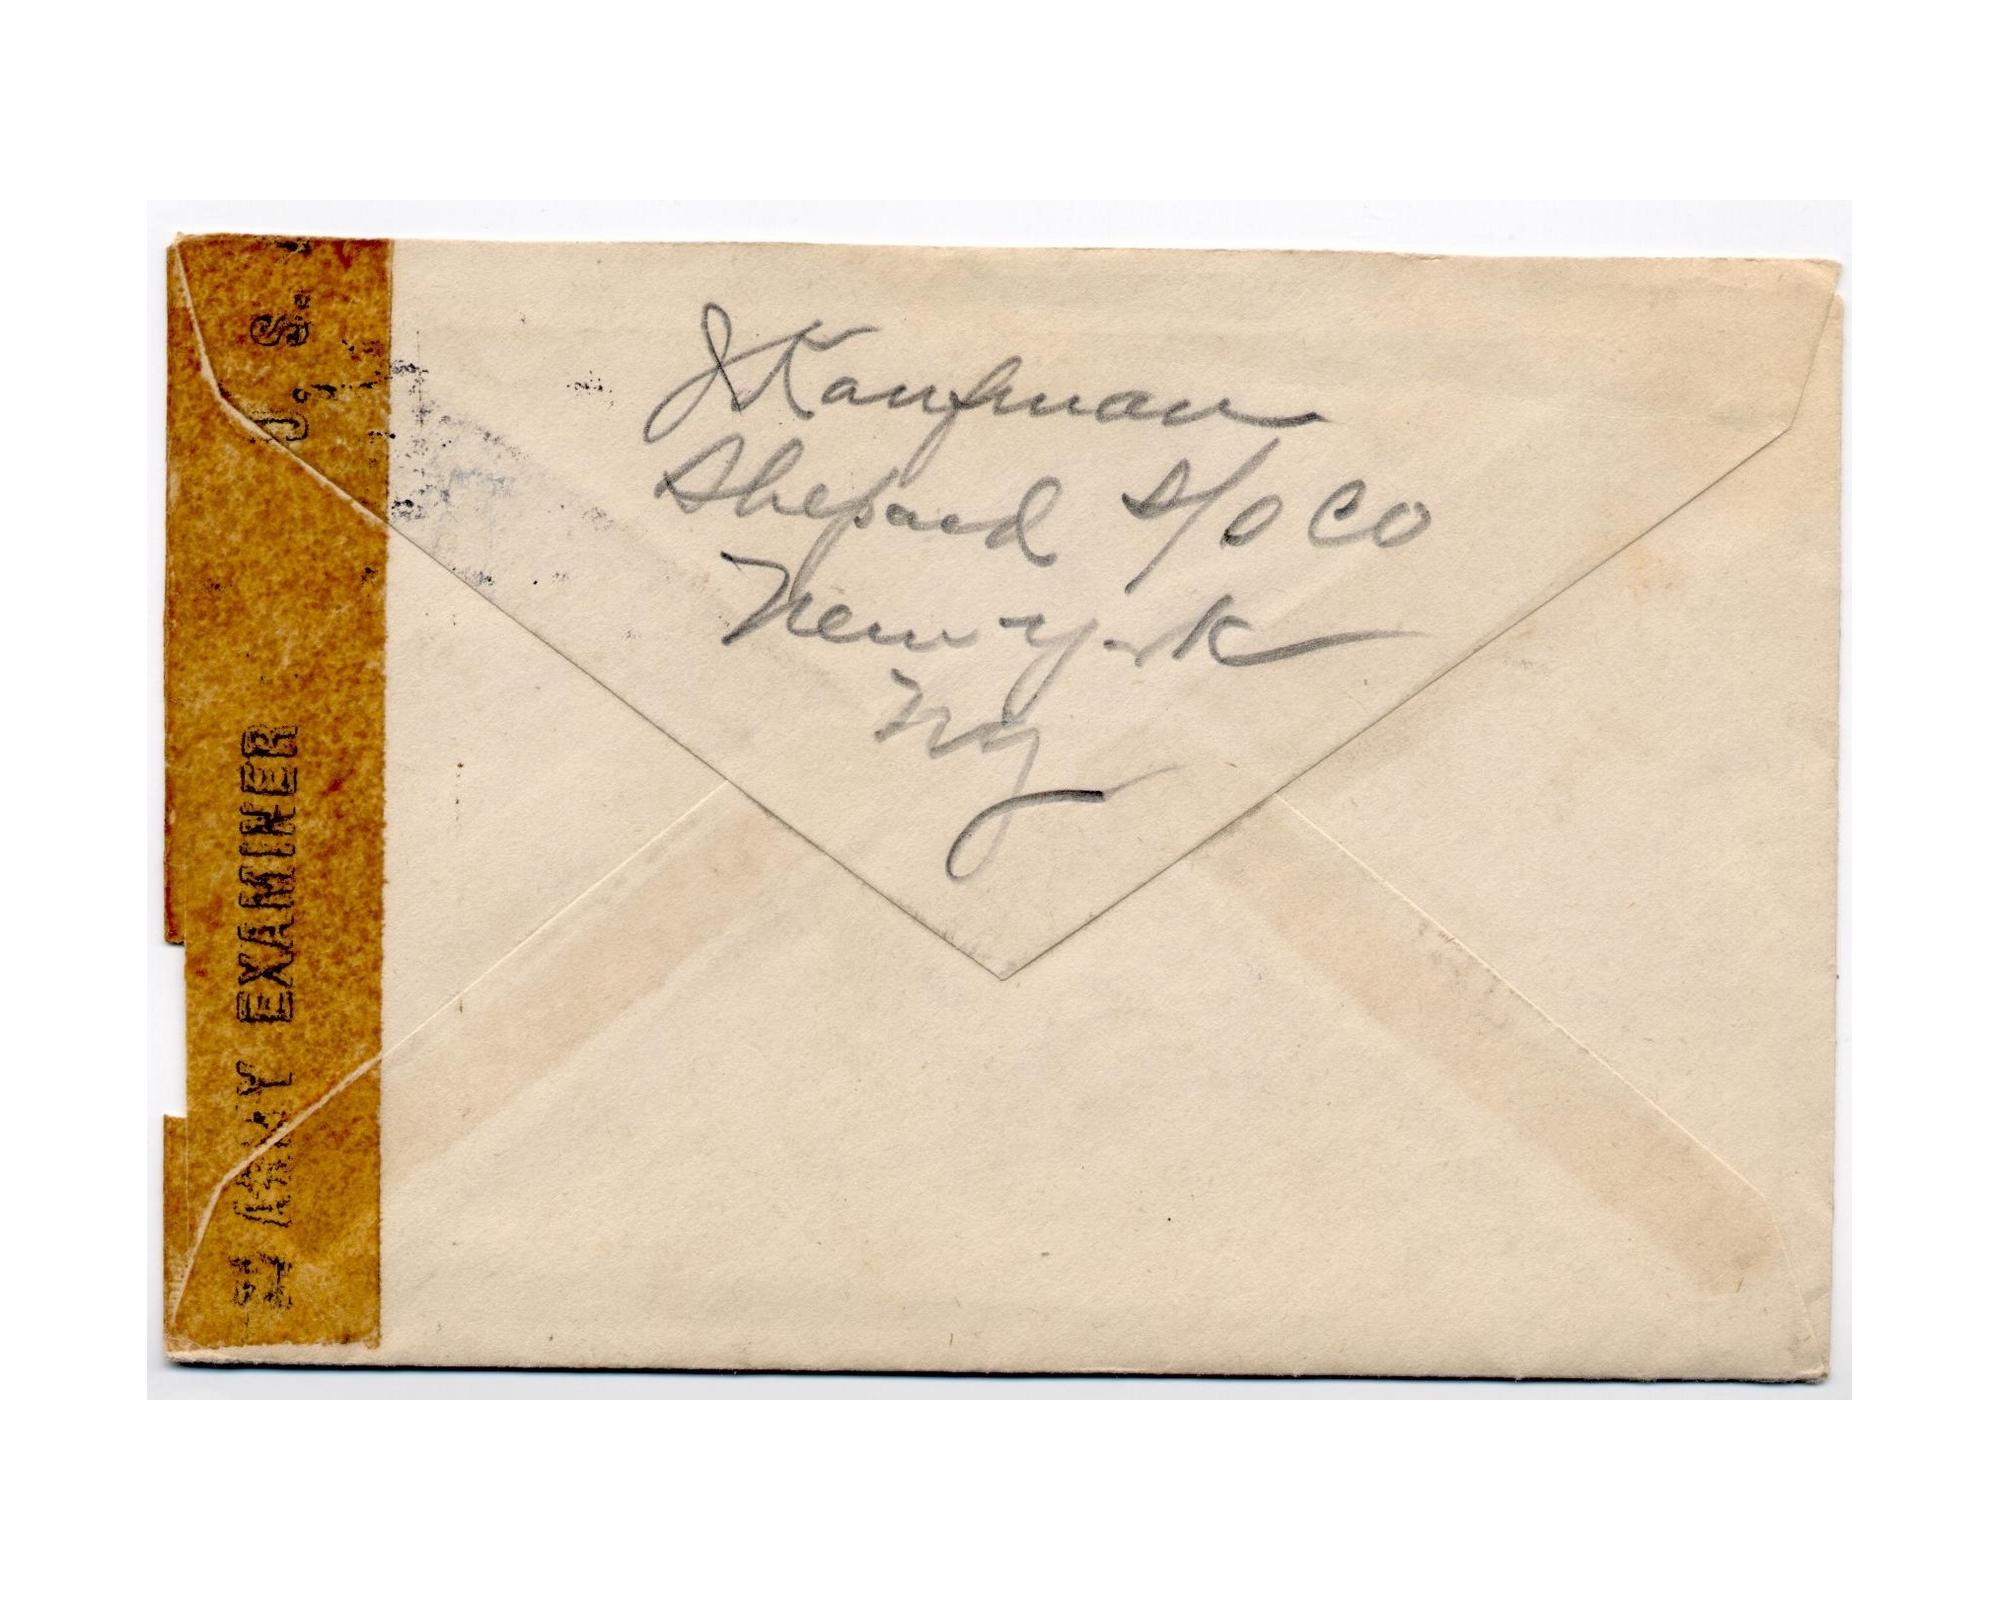 J Kaufman
Shepard S/S CO
New York
NY
U. S.
ARMY EXAMINER